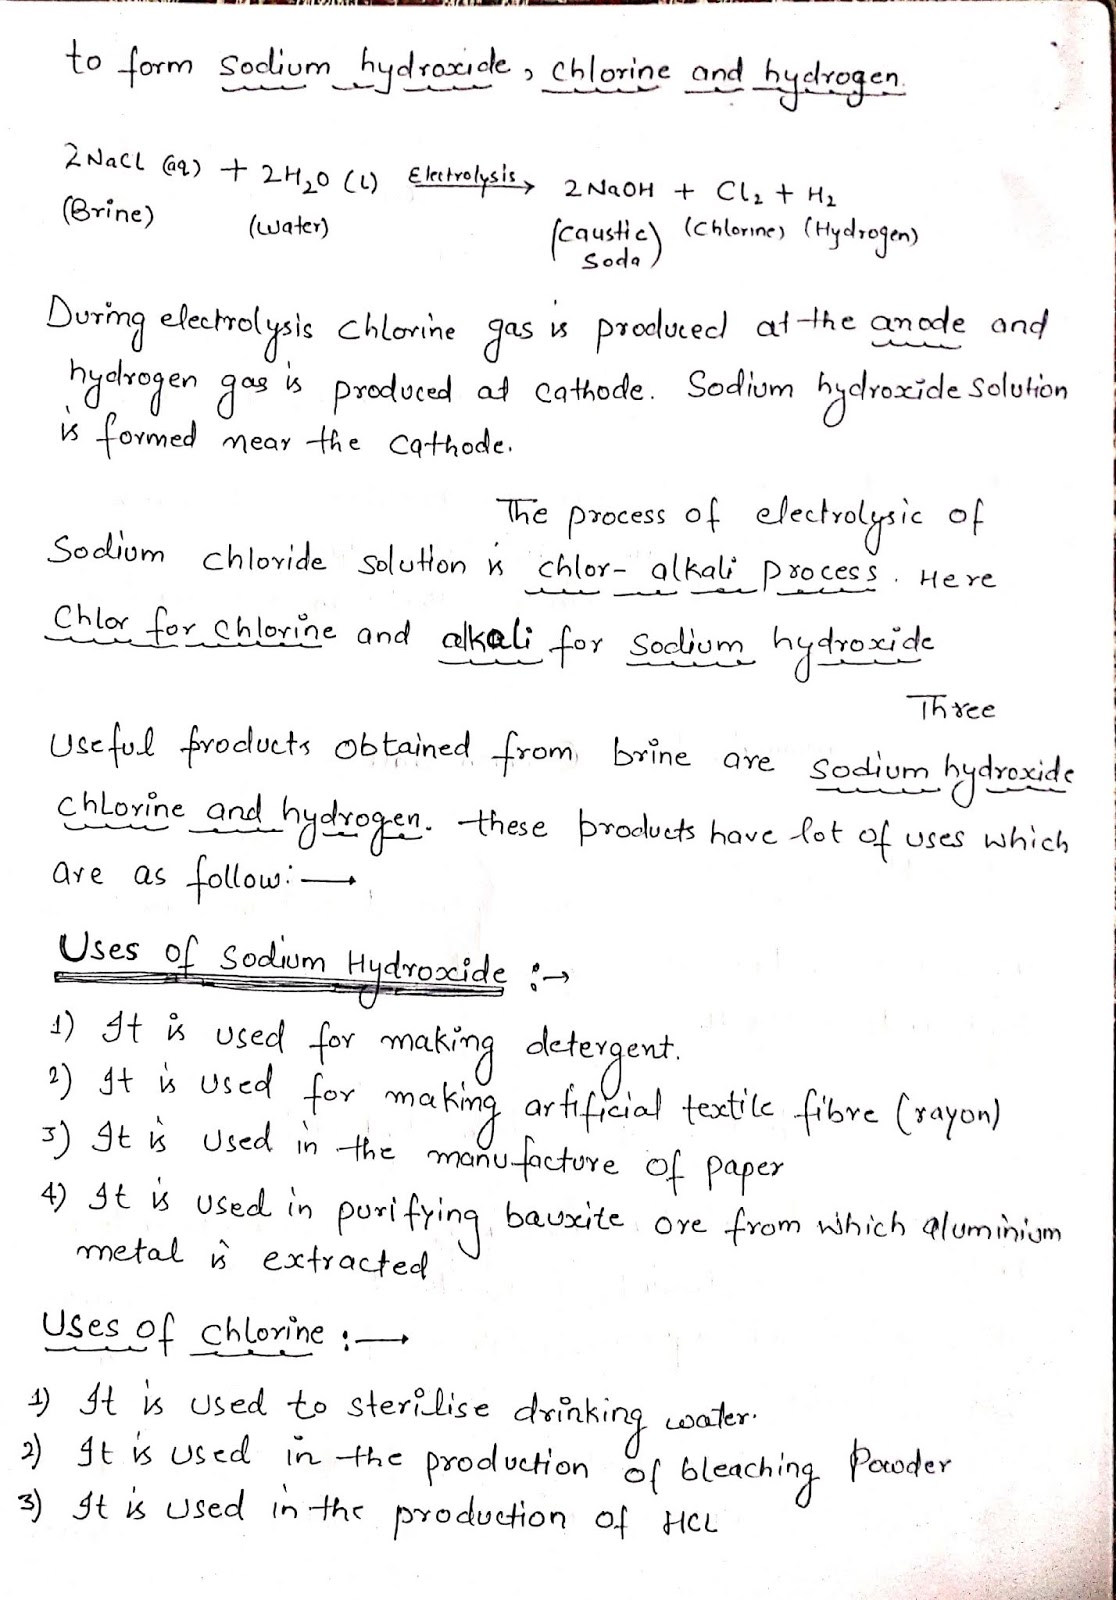 to form sodium hydroxide, chlorine and hydrogen.
2NaCl (aq) + 2H₂O (l) Electrolysis → 2NaOH + Cl₂ + H₂
(Brine) (water) (Caustic Soda) (Chlorine) (Hydrogen)
During electrolysis chlorine gas is produced at the anode and
hydrogen gas is produced at cathode. Sodium hydroxide solution
is formed near the cathode.
The process of electrolysic of
Sodium chloride solution is chlor-alkali process. Here
Chlor for chlorine and alkali for sodium hydroxide
Three
Useful products obtained from brine are sodium hydroxide
chlorine and hydrogen. these products have lot of uses which
are as follow:→
Uses of Sodium Hydroxide :→
1) It is used for making detergent.
2) It is used for making artificial textile fibre (rayon)
3) It is used in the manufacture of paper
4) It is used in purifying bauxite ore from which aluminium
metal is extracted
Uses of chlorine :→
1) It is used to sterilise drinking water.
2) It is used in the production of bleaching Powder
3) It is used in the production of HCL